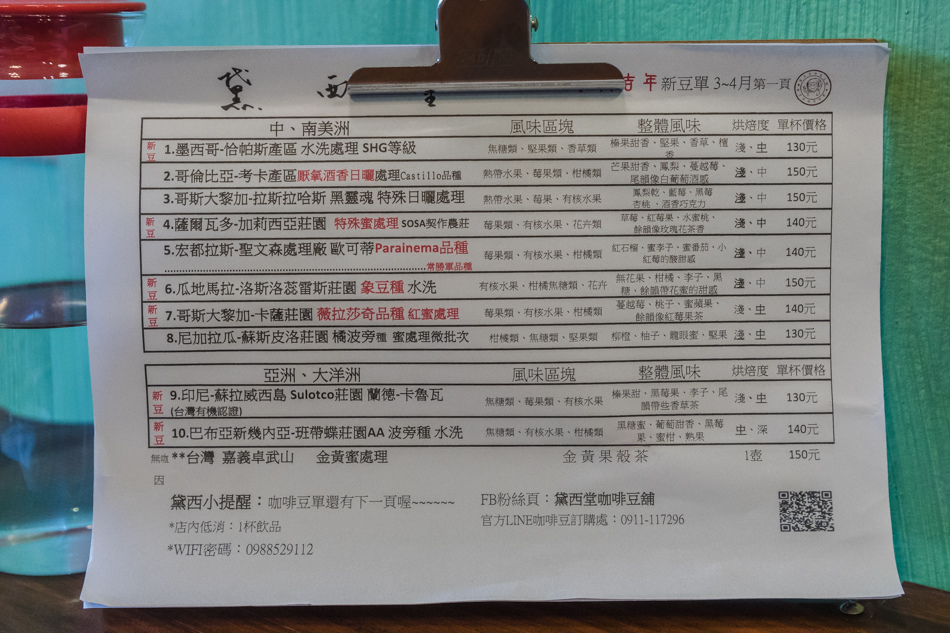 黛 西
吉年 新豆單 3~4月第一頁
中、南美洲 風味區塊 整體風味 烘焙度 單杯價格
新豆 1.墨西哥-恰帕斯產區 水洗處理 SHG等級 焦糖類、堅果類、香草類 榛果甜香、堅果、香草、檀香 淺、中 130元
2.哥倫比亞-考卡產區厭氧酒香日曬處理Castillo品種 熱帶水果、莓果類、柑橘類 芒果甜香、鳳梨、蔓越莓、尾韻像白葡萄酒感 淺、中 150元
3.哥斯大黎加-拉斯拉哈斯 黑靈魂 特殊日曬處理 熱帶水果、莓果、有核水果 鳳梨乾、藍莓、黑莓 杏桃、酒香巧克力 淺、中 150元
新豆 4.薩爾瓦多-加莉西亞莊園 特殊蜜處理 SOSA契作農莊 莓果類、有核水果、花卉類 草莓、紅莓果、水蜜桃、餘韻像玫瑰花茶香 淺、中 140元
5.宏都拉斯-聖文森處理廠 歐可蒂Parainema品種 莓果類、有核水果、柑橘類 紅石榴、蜜李子、蜜番茄、小紅莓的酸甜感 淺、中 140元
常勝軍品種
新豆 6.瓜地馬拉-洛斯洛蕊雷斯莊園 象豆種 水洗 有核水果、柑橘焦糖類、花卉 無花果、柑橘、李子、黑糖、餘韻帶花蜜的甜感 淺、中 150元
新豆 7.哥斯大黎加-卡薩莊園 薇拉莎奇品種 紅蜜處理 莓果類、有核水果、柑橘類 蔓越莓、桃子、蜜蘋果、餘韻像紅莓果茶 淺、中 140元
8.尼加拉瓜-蘇斯皮洛莊園 橘波旁種 蜜處理微批次 柑橘類、焦糖類、堅果類 柳橙、柚子、龍眼蜜、堅果 淺、中 130元
亞洲、大洋洲 風味區塊 整體風味 烘焙度 單杯價格
新豆 9.印尼-蘇拉威西島 Sulotco莊園 蘭德-卡魯瓦 焦糖類、莓果類、有核水果 榛果甜、黑莓果、李子、尾韻帶些香草茶 淺、中 130元
(台灣有機認證)
新豆 10.巴布亞新幾內亞-班帶蝶莊園AA 波旁種 水洗 焦糖類、有核水果、柑橘類 黑糖蜜、葡萄甜香、黑莓果、蜜柑、熟果 中、深 140元
無咖因 **台灣 嘉義卓武山 金黃蜜處理 金黃果殼茶 1壺 150元
黛西小提醒：咖啡豆單還有下一頁喔~~~~~~ FB粉絲頁：黛西堂咖啡豆舖
*店內低消：1杯飲品 官方LINE咖啡豆訂購處：0911-117296
*WIFI密碼：0988529112